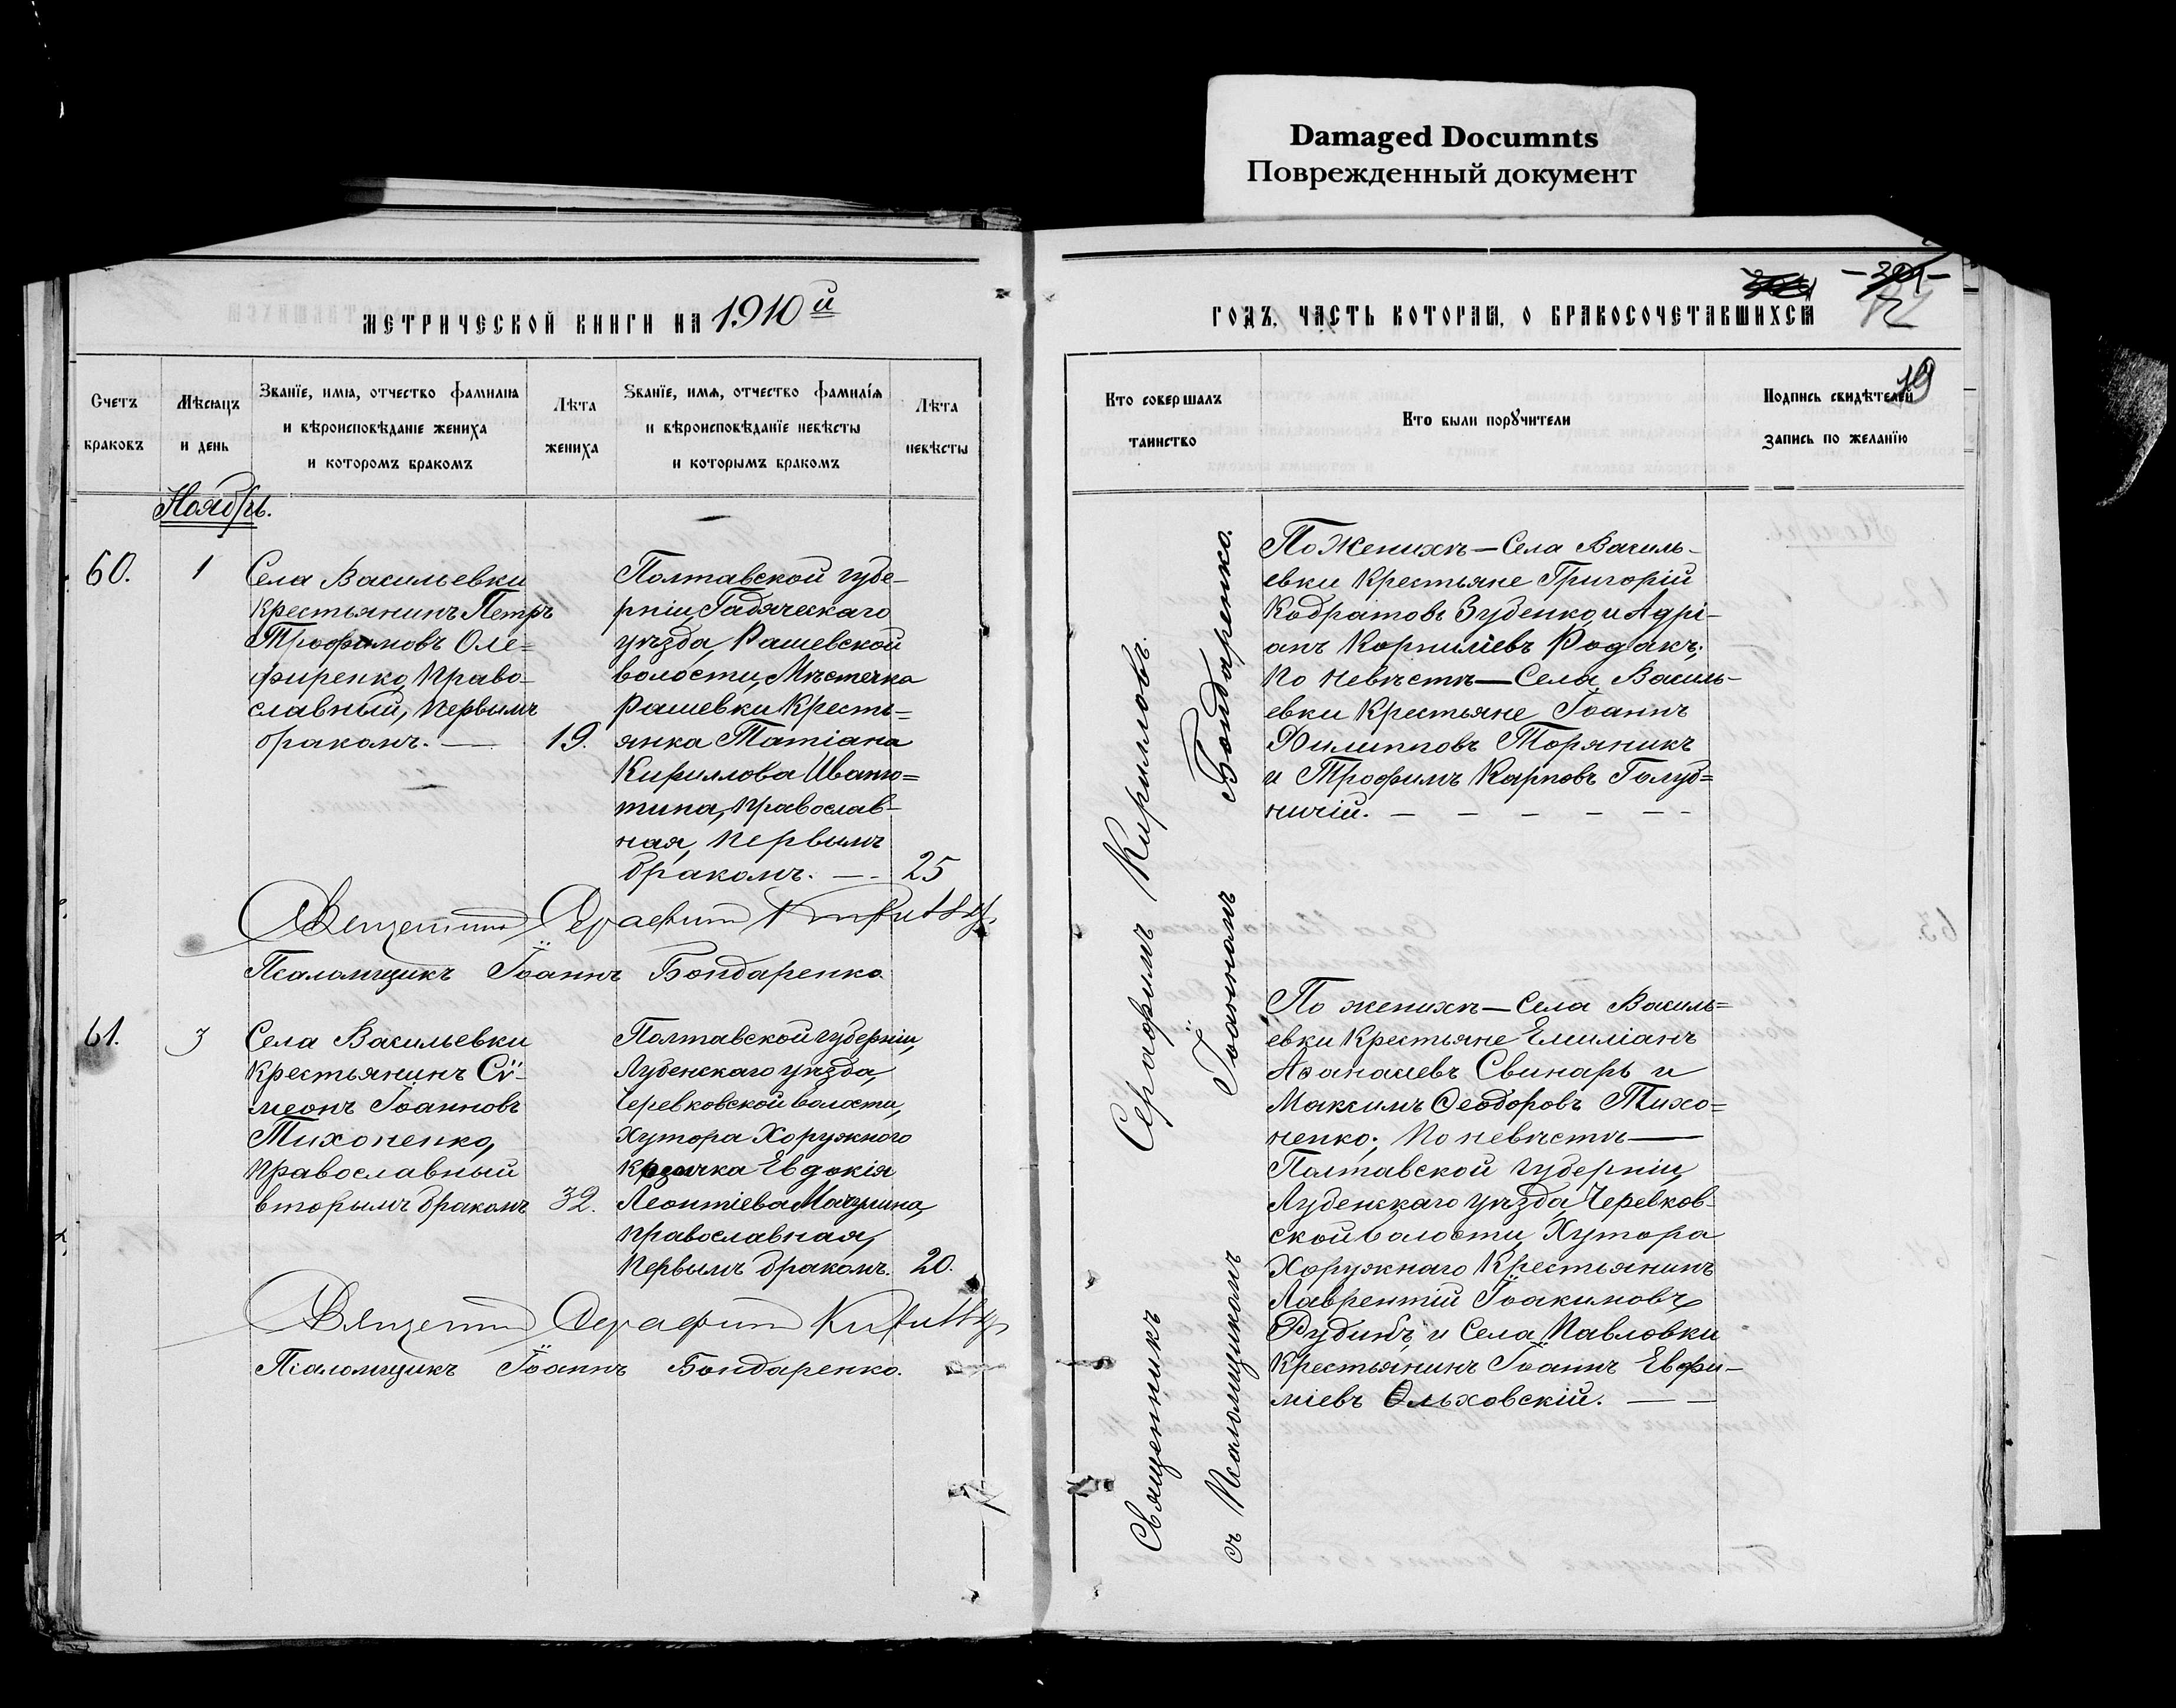 Damaged Documnts
Поврежденный документ
МЕТРИЧЕСКОЙ КНИГИ НА 1910й
Счетъ браковъ
Мѣсяцъ и день
Званїе, имя, отчество фамилїя
и вѣроисповѣданїе жениха
и которомъ бракомъ
Лѣта жениха
Званїе, имя, отчество фамилїя
и вѣроисповѣданїе невѣсты
и которымъ бракомъ
Лѣта невѣсты
Ноябрь.
60.
1
Села Васильевки
крестьянинъ Петръ
Трофимовъ Оле=
фиренко, право-
славный, первымъ
бракомъ. —
19.
Полтавской губе-
рніи, Гадячскаго
уѣзда, Рашевской
волости, Мѣстечка
Рашевки Кресть=
янка Татіана
Кириллова Иваню=
тина, православ-
ная, первымъ
бракомъ. —
25
Священникъ Серафимъ Кириллов
Псаломщикъ Їоаннъ Бондаренко
61.
3
Села Васильевки
крестьянинъ Сѵ-
меонъ Іоанновъ
Тихоненко,
православный
вторымъ бракомъ
32.
Полтавской губерніи,
Лубенскаго уѣзда,
Черевковской волости,
Хутора Хоружного
Козачка Евдокія
Леонтіева Мачулина,
православная,
первымъ бракомъ.
20.
Священникъ Серафимъ Кириллов
Псаломщикъ Їоаннъ Бондаренко.
ГОДЪ, ЧАСТЬ КОТОРАЯ, О БРАКОСОЧЕТАВШИХСЯ
19
Кто совершалъ таинство
Кто были порꙋчители
Подпись свидѣтелей
запись по желанїю
Священникъ Серафимъ Кирилловъ.
съ Псаломщикомъ Їоанномъ Бондаренко.
По Женихѣ — Села Василь-
евки Крестьяне Григорій
Кодратовъ Зубенко, и Адрі-
анъ Корниліевъ Родакъ;
По невѣстѣ — Села Василь-
евки Крестьяне Іоаннъ
Филипповъ Торяникъ
и Трофимъ Карповъ Голуб=
ничій. — — — — — -
По женихѣ — Села Василь=
евки Крестьяне Емиліанъ
Аѳанасіевъ Свинарь и
Максимъ Ѳеодоровъ Тихо=
ненко; По невѣстѣ —
Полтавской губерніи,
Лубенскаго уѣзда, Черевков-
ской волости, Хутора
Хоружнаго Крестьянинъ
Лаврентій Їоакимовъ
Рудинъ, и Села Павловки
Крестьянинъ Їоаннъ Евфи-
міевъ Ольховскій. — —